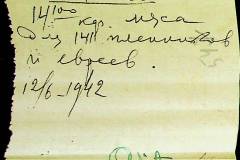 14100 кг. мяса
для 141 пленников
и евреев.
12/6-1942